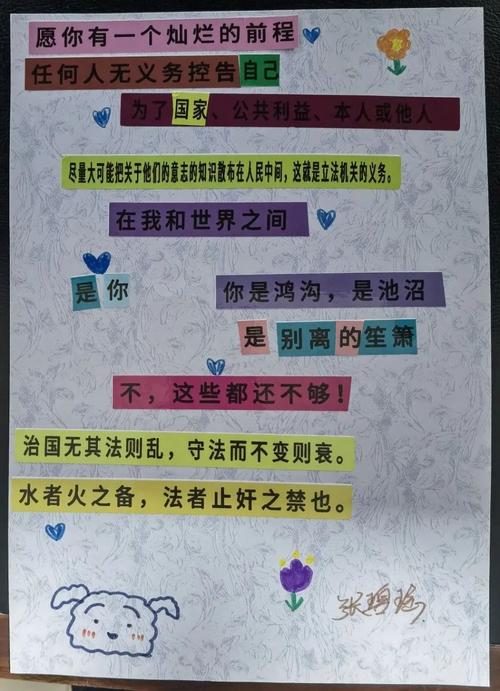 愿你有一个灿烂的前程
任何人无义务控告自己
为了国家、公共利益、本人或他人
尽量大可能把关于他们的意志的知识散布在人民中间，这就是立法机关的义务。
在我和世界之间
是你 你是鸿沟，是池沼
是别离的笙箫
不，这些都还不够！
治国无其法则乱，守法而不变则衰。
水者火之备，法者止奸之禁也。